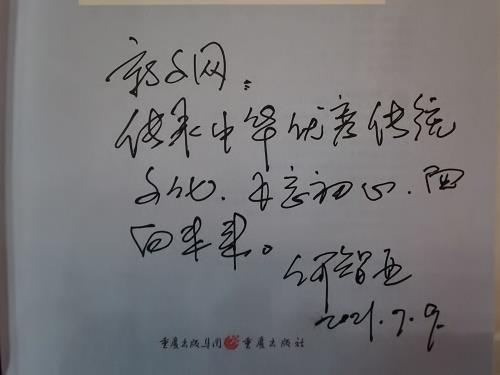 文网：
传承中华优秀传统
文化．不忘初心．面
向未来。
何智亚
2021.7.9.
重慶出版集团 重慶出版社